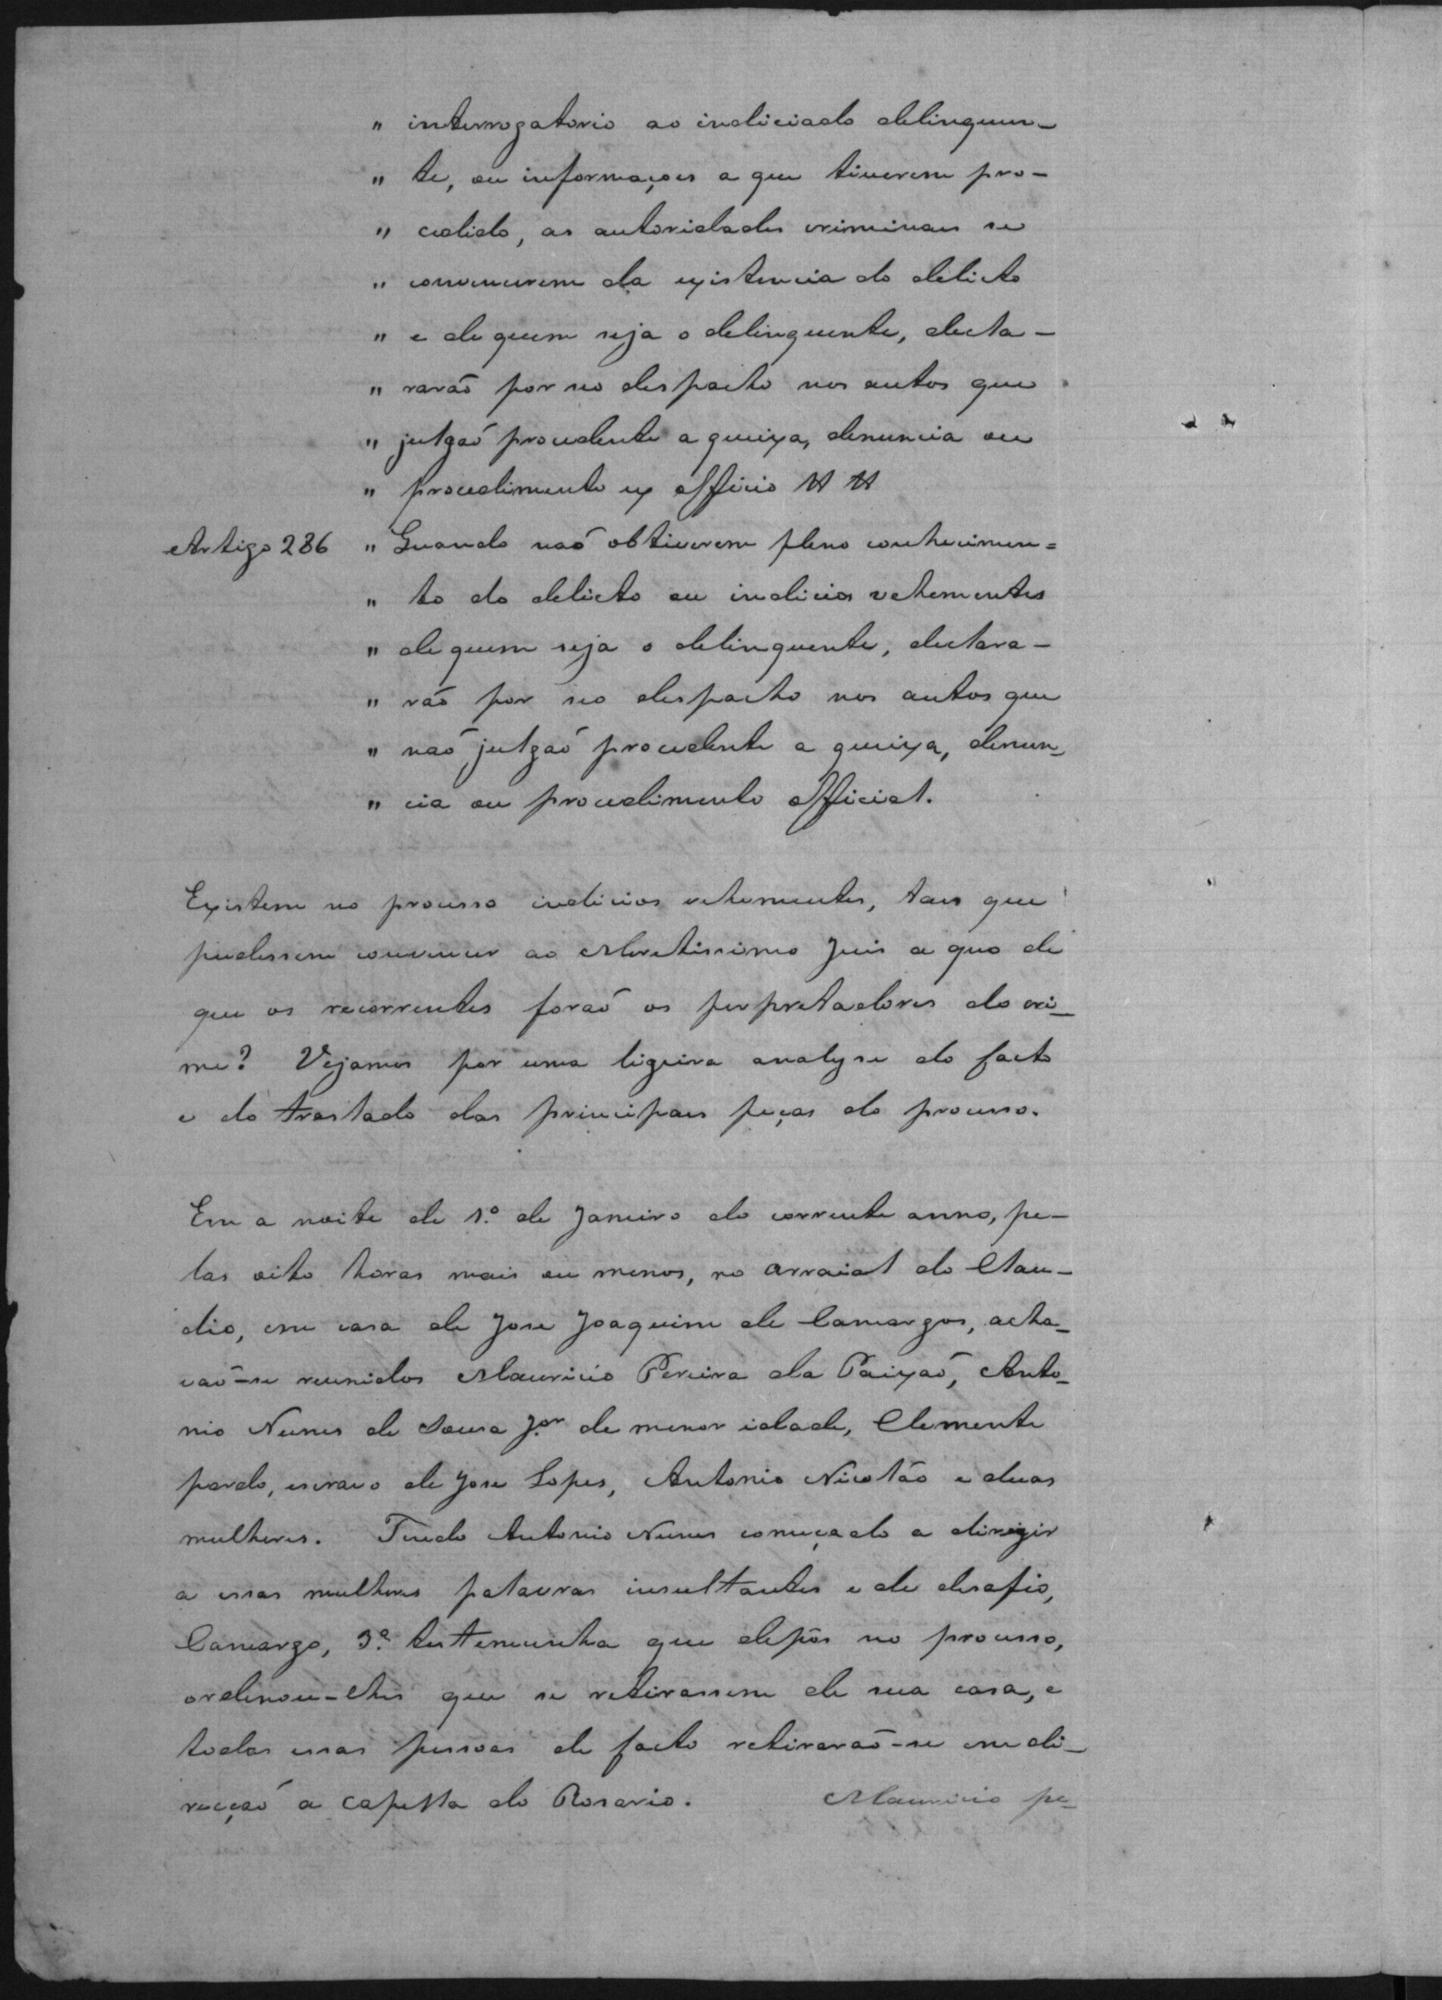 " interrogatorio ao indiciado delinquen-
" te, ou informaçoes a que tiverem pro-
" cedido, as autoridades criminaes se
" convencerem da existencia do delicto
" e de quem seja o delinquente, decla-
" rarão por seo despacho nos autos que
" julgaõ procedente a queixa, denuncia ou
" procedimento ex officio
Artigo 286 " Quando naõ obtiverem pleno conhecimen=
" to do delicto ou indicios vehementes
" de quem seja o delinquente, declara-
" rão por seo despacho nos autos que
" naõ julgaõ procedente a queixa, denun-
" cia ou procedimento official.
Existem no processo indicios vehementes, taes que
pudessem convencer ao Meretissimo Juis a quo de
que os recorrentes foraõ os perpretadores do cri-
me? Vejamos por uma ligeira analyse do facto
e do traslado das principaes peças do processo.
Em a noite de 1.º de Janeiro do corrente anno, pe-
las oito horas mais ou menos, no arraial do Clau-
dio, em casa de Jose Joaquim de Camargos, acha-
vaõ-se reunidos Mauricio Pereira da Paixaõ, Anto-
nio Nunes de Sousa J.or de menor idade, Clemente
pardo, escravo de Jose Lopes, Antonio Nicoláo e duas
mulheres. Tendo Antonio Nunes começado a dirigir
a essas mulheres palavras insultantes e de desafio,
Camargo, 3.ª testemunha que depôs no processo,
ordenou-lhes que se retirassem de sua casa, e
todas essas pessoas de facto retiraraõ-se em di-
recçaõ a capella do Rosario. Mauricio pe-